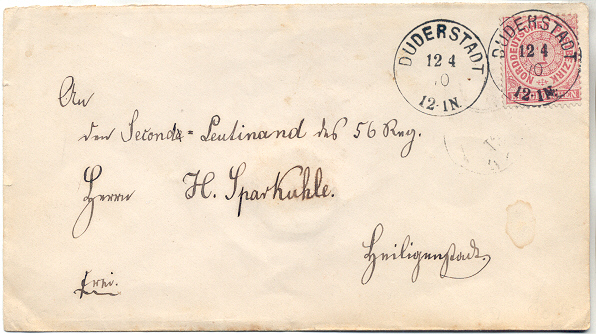 DUDERSTADT
12 4
0
12-1N.
DUDERSTADT
12 4
0
12-1N.
NORDDEUTSCHER
BEZIRK
An
den Seconde=Leutinand des 56 Reg.
Herrn H. Sparkuhle.
Heiligenstadt.
frei.